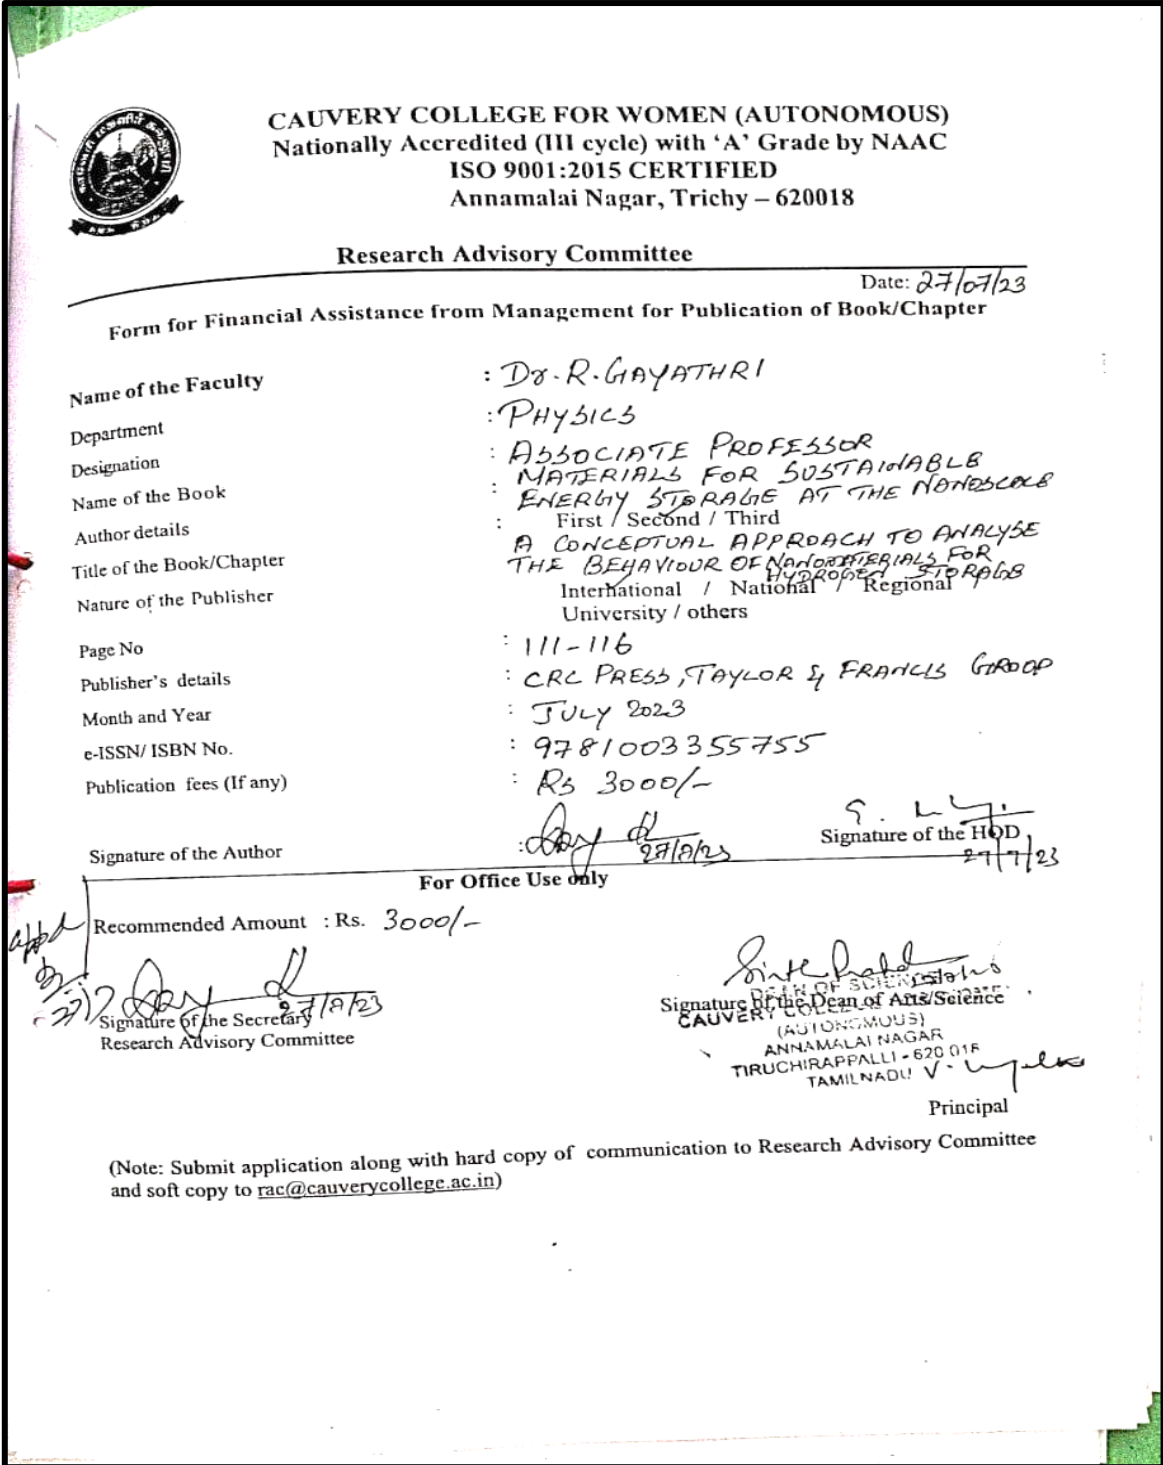 CAUVERY COLLEGE FOR WOMEN (AUTONOMOUS)
Nationally Accredited (III cycle) with ‘A’ Grade by NAAC
ISO 9001:2015 CERTIFIED
Annamalai Nagar, Trichy – 620018
Research Advisory Committee
Date: 27/07/23
Form for Financial Assistance from Management for Publication of Book/Chapter
Name of the Faculty : Dr. R. GAYATHRI
Department : PHYSICS
Designation : ASSOCIATE PROFESSOR
Name of the Book : MATERIALS FOR SUSTAINABLE
ENERGY STORAGE AT THE NANOSCALE
Author details : First / Second / Third
Title of the Book/Chapter A CONCEPTUAL APPROACH TO ANALYSE
THE BEHAVIOUR OF NANOMATERIALS FOR
HYDROGEN STORAGE
Nature of the Publisher International / National / Regional
University / others
Page No : 111-116
Publisher's details : CRC PRESS, TAYLOR & FRANCIS GROOP
Month and Year : JULY 2023
e-ISSN/ ISBN No. : 9781003355755
Publication fees (If any) : Rs 3000/-
Signature of the Author : 27/7/23
Signature of the HOD
27/7/23
For Office Use only
appd
Recommended Amount : Rs. 3000/-
27/7
27/7/23
Signature of the Secretary
Research Advisory Committee
DEAN OF SCIENCE
Signature of the Dean of Arts/Science
CAUVERY COLLEGE
(AUTONOMOUS)
ANNAMALAI NAGAR
TIRUCHIRAPPALLI - 620 018
TAMILNADU
Principal
(Note: Submit application along with hard copy of communication to Research Advisory Committee
and soft copy to rac@cauverycollege.ac.in)